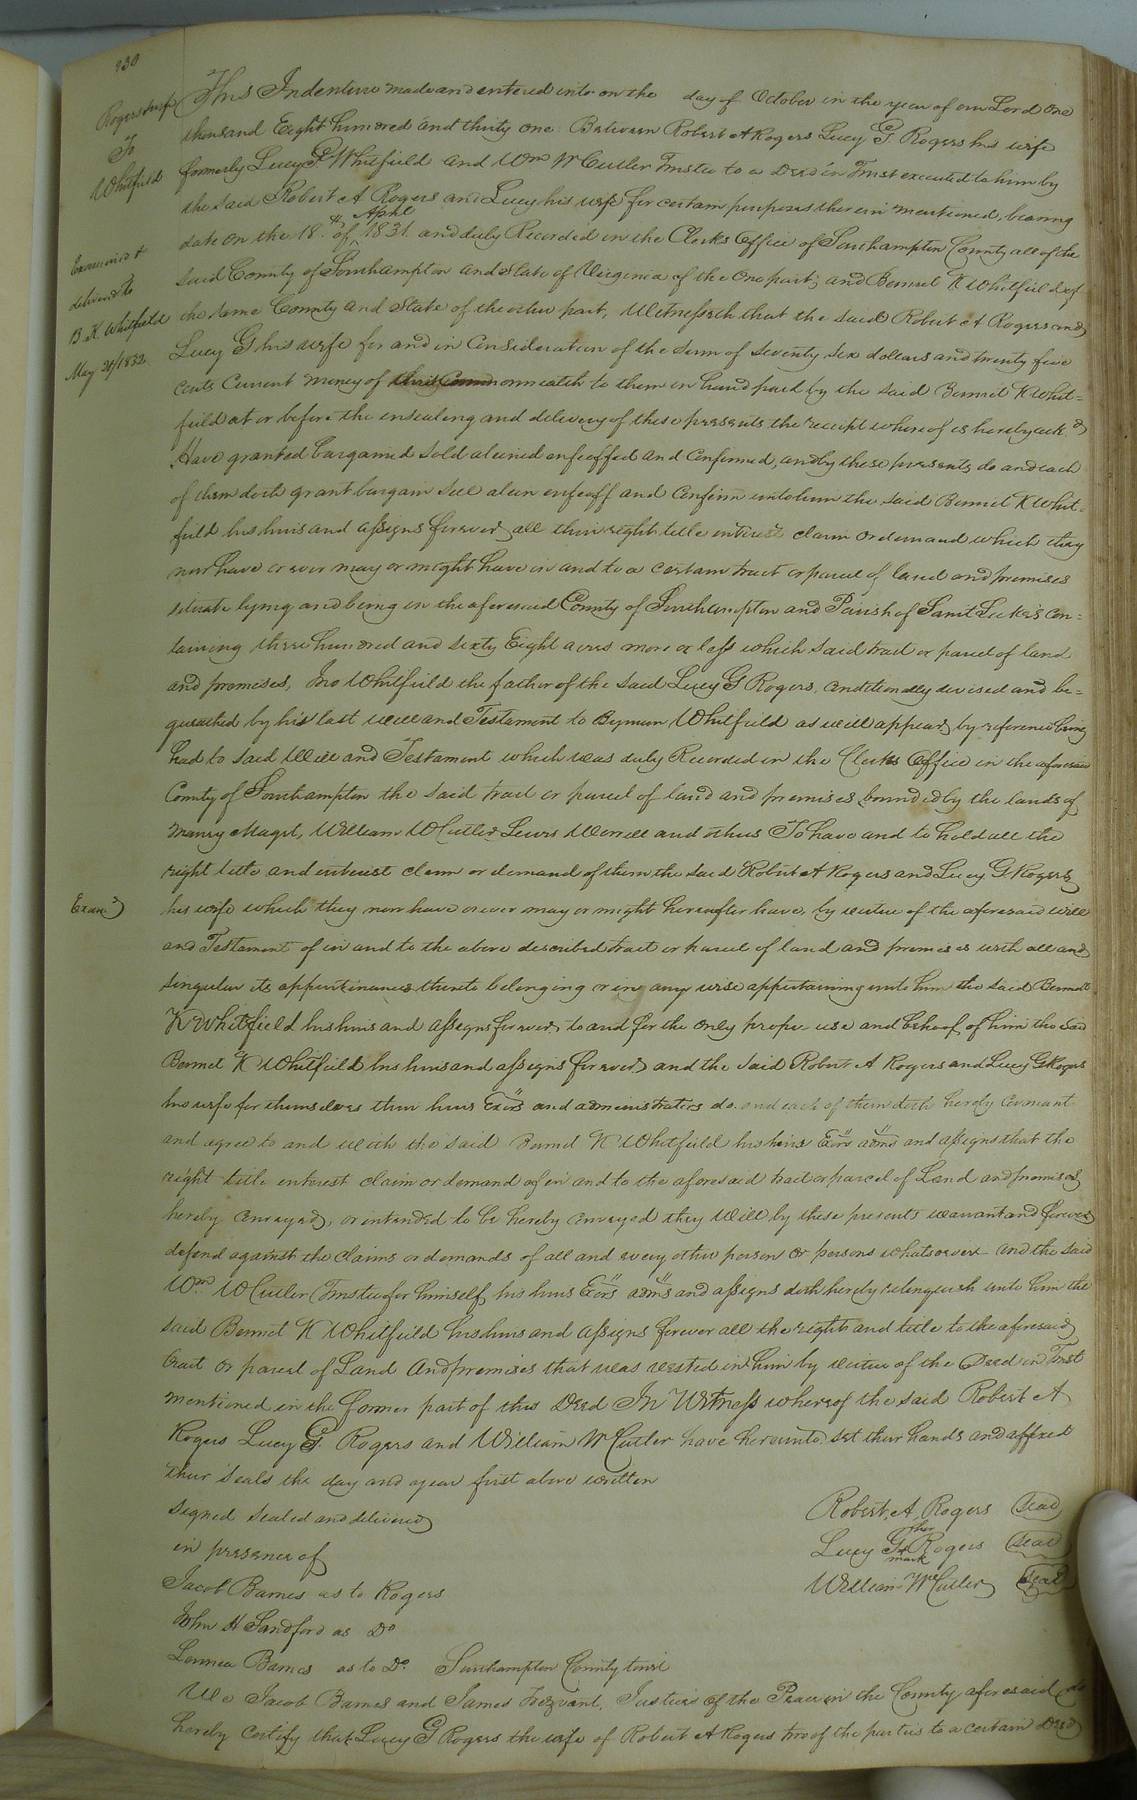 230
Rogers & wife
To
Whitfield
Examined &
delivered to
B. K. Whitfield
May 21/1832
Exam.d
This Indenture made and entered into on the day of October in the year of our Lord one
thousand Eight hundred and thirty one: Between Robert A Rogers Lucy G. Rogers his wife
formerly Lucy G. Whitfield and Wm W Cutler Trustee to a Deed in Trust executed to him by
the said Robert A Rogers and Lucy his wife for certain purposes therein mentioned, bearing
date on the 18.th of April 1831. and duly Recorded in the Clerks Office of Southampton County all of the
said County of Southampton and State of Virginia of the one part; and Bennet K Whitfield of
the same County and State of the other part, Witnesseth that the said Robert A Rogers and
Lucy G his wife for and in consideration of the sum of seventy six dollars and twenty five
cents current money of to them in hand paid by the said Bennet K Whit=
field at or before the ensealing and delivery of these presents the receipt whereof is hereby ack.d
Have granted bargained sold aliened enfeoffed and confirmed, and by these presents do and each
of them doth grant bargain sell alien enfeoff and confirm unto him the said Bennet K Whit=
field his heirs and assigns forever, all their right title interest claim or demand which they
now have or ever may or might have in and to a certain tract or parcel of land and premises
situate lying and being in the aforesaid County of Southampton and Parish of Saint Luke's con=
taining three hundred and sixty Eight acres more or less which said tract or parcel of land
and premises, Jno Whitfield the father of the said Lucy G Rogers, conditionally devised and be=
queathed by his last will and Testament to Whitfield as will appear by reference being
had to said Will and Testament which was duly Recorded in the Clerks Office in the aforesaid
County of Southampton the said tract or parcel of land and premises bounded by the lands of
William W Cutler Lewis Worrell and others To have and to hold all the
right title and interest claim or demand of them the said Robert A Rogers and Lucy G. Rogers
his wife which they now have or ever may or might hereafter have, by virtue of the aforesaid will
and Testament of in and to the above described tract or parcel of land and premises with all and
singular its appurtenances thereto belonging or in any wise appertaining unto him the said Bennet
K Whitfield his heirs and assigns forever, to and for the only proper use and behoof of him the said
Bennet K Whitfield his heirs and assigns forever and the said Robert A Rogers and Lucy G Rogers
his wife for themselves their heirs Exors and administrators do and each of them doth hereby covenant
and agree to and with the said Bennet K Whitfield his heirs Exors adms and assigns that the
right title interest claim or demand of in and to the aforesaid tract or parcel of Land and premises
hereby conveyed, or intended to be hereby conveyed they will by these presents warrant and forever
defend against the claims or demands of all and every other person or persons whatsoever and the said
Wm W Cutler Trustee for himself, his heirs Exors adms and assigns doth hereby relinquish unto him the
said Bennet K Whitfield his heirs and assigns forever all the right and title to the aforesaid
tract or parcel of Land and premises that was vested in him by virtue of the Deed in Trust
mentioned in the former part of this Deed In Witness whereof the said Robert A
Rogers Lucy G. Rogers and William W Cutler have hereunto set their hands and affixed
their seals the day and year first above written
Signed sealed and delivered
in presence of
Jacob Barnes as to Rogers
John H Sandford as Do
Barnes as to Do
Robert A Rogers Seal
Lucy G Rogers Seal
her
mark
William W Cutler Seal
Southampton County towit
We Jacob Barnes and James Trezvant, Justices of the Peace in the County aforesaid do
hereby certify that Lucy G Rogers the wife of Robert A Rogers two of the parties to a certain Deed